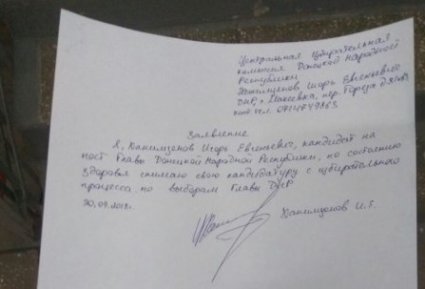 Центральная избирательная
комиссия Донецкой Народной
Республики
Хакимзянов Игорь Евгеньевич
ДНР, г. Макеевка, пер. Героя
тел. 0714749863
Заявление
Я, Хакимзянов Игорь Евгеньевич, кандидат на
пост Главы Донецкой Народной Республики, по состоянию
здоровья снимаю свою кандидатуру с избирательного
процесса по выборам Главы ДНР
30.09.2018г.
Хакимзянов И.Е.